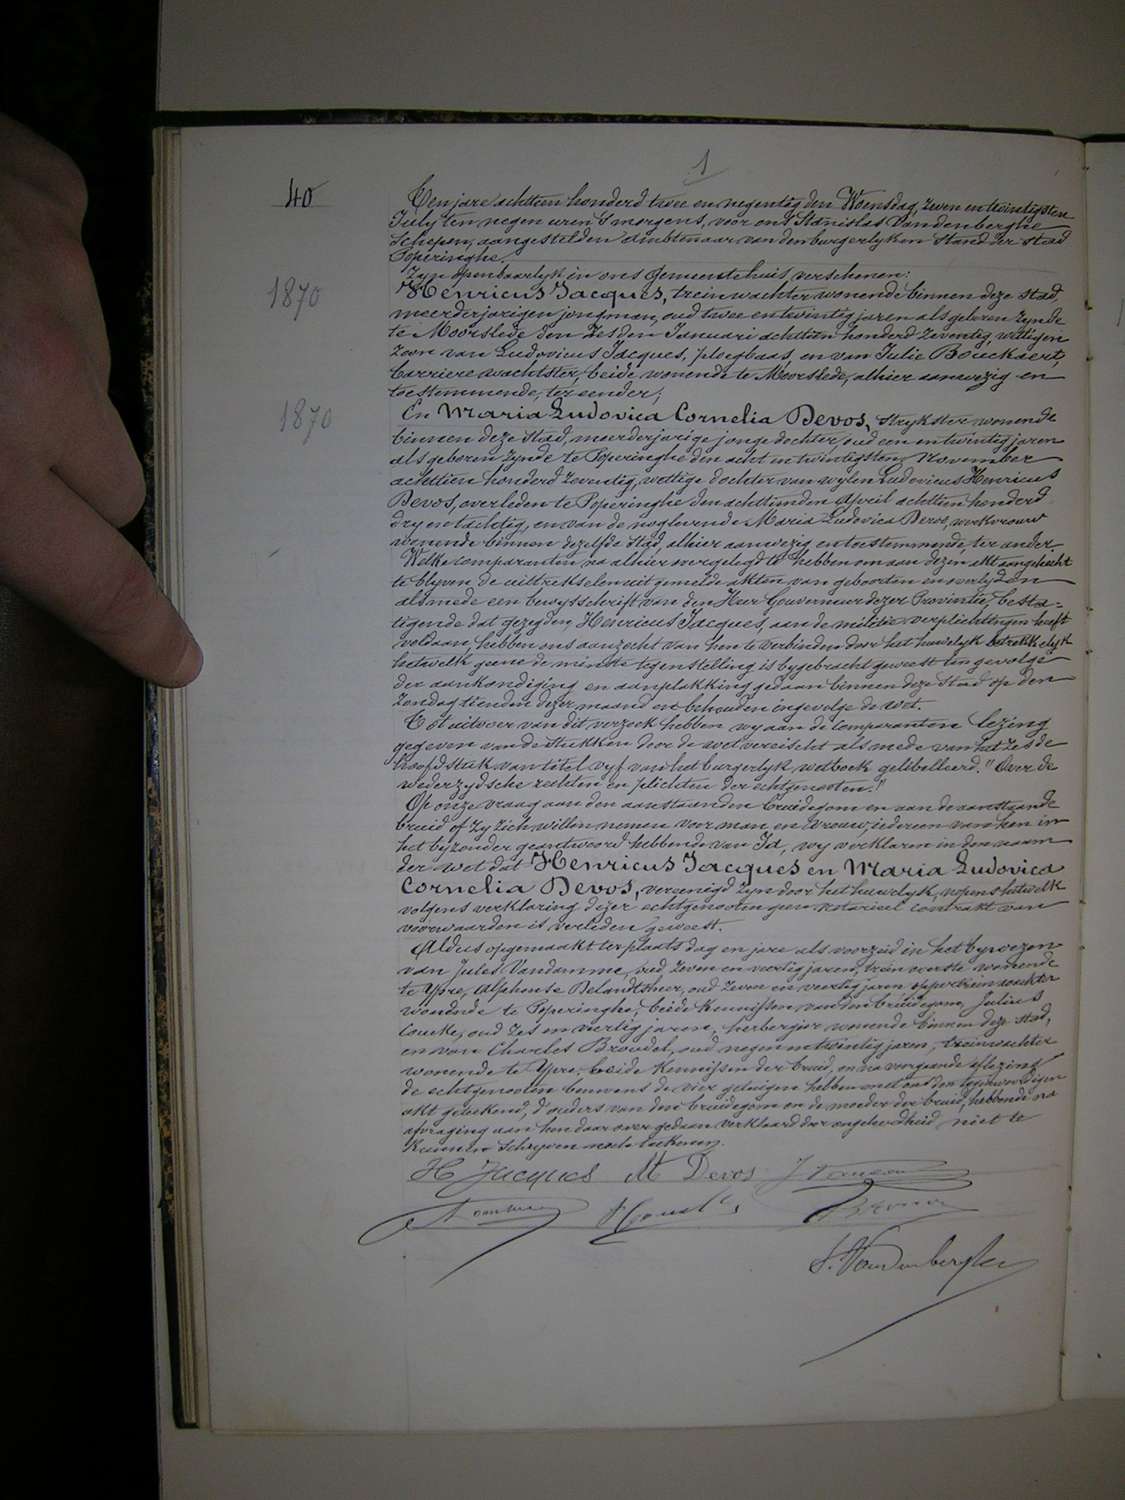 1
40
Ten jare achttien honderd twee en negentig den Woensdag, zeven en twintigsten
July ten negen uren 's morgens, voor ons Stanislas Vandenberghe
Schepen, aangestelden ambtenaar van den burgerlyken stand der stad
Poperinghe.
Zyn openbaarlyk in ons gemeentehuis verschenen:
1870
Henricus Jacques, treinwachter wonende binnen deze stad,
meerderjarigen jongman, oud twee en twintig jaren als geboren zynde
te Moorslede den zesden Januari achttien honderd zeventig, wettigen
zoon van Ludovicus Jacques, ploegbaas, en van Julie Bouckaert,
barrierewachtster, beide wonende te Moorslede, alhier aanwezig en
toestemmende, ter eender;
1870
En Maria Ludovica Cornelia Devos, strykster wonende
binnen deze stad, meerderjarige jonge dochter, oud een en twintig jaren
als geboren zynde te Poperinghe den acht en twintigsten November
achttien honderd zeventig, wettige dochter van wylen Ludovicus Henricus
Devos, overleden te Poperinghe den achttienden April achttien honderd
dry en tachtig, en van de noglevende Maria Ludovica Devos, werkvrouw
wonende binnen dezelfde stad, alhier aanwezig en toestemmende, ter ander.
Welke comparanten na alhier overgelegd te hebben om aan dezen akt aangehecht
te blyven de uittrekselen uit gemelde akten van geboorten en overlyden
alsmede een bewysschrift van den Heer Gouverneur dezer Provintie, besta-
tigende dat gezegden Henricus Jacques, aan de militie verplichtingen heeft
voldaan, hebben ons aanzocht van hen te verbinden door het huwelyk betrekkelyk
hetwelk geene de minste tegenstelling is bygebracht geweest ten gevolge
der aankondiging en aanplakking gedaan binnen deze stad op den
Zondag tienden dezer maand en behouden ingevolge de wet.
Tot uitvoer van dit verzoek hebben wy aan de comparanten lezing
gegeven van de stukken door de wet vereischt alsmede van het zesde
hoofdstuk van titel vyf van het burgerlyk wetboek gelibelleerd. "Over de
wederzydsche rechten en plichten der echtgenooten."
Op onze vraag aan den aanstaanden bruidegom en aan de aanstaande
bruid of zy zich willen nemen voor man en vrouw, iedereen van hen in
het byzonder geantwoord hebbende van Ja, wy verklaren in den naam
der wet dat Henricus Jacques en Maria Ludovica
Cornelia Devos, vereenigd zyn door het huwelyk, nopens hetwelk
volgens verklaring dezer echtgenooten geen notarieel contrakt van
voorwaarden is verleden geweest.
Aldus opgemaakt ter plaats dag en jare als voorzeid in het bywezen
van Jules Vandamme, oud zeven en veertig jaren, trein overste wonende
te Ypre, Alphonse Delandtsheer, oud zeven en veertig jaren oppertreinwachter
wonende te Poperinghe, beide kennissen van den bruidegom, Julius
Coucke, oud zes en viertig jaren, herbergier wonende binnen deze stad,
en van Charles Broudel, oud negen en twintig jaren, treinwachter
wonende te Ypre, beide kennissen der bruid, en na voorgaande aflezing
de echtgenooten benevens de vier getuigen hebben met ons den tegenwoordigen
akt geteekend, d'ouders van den bruidegom en de moeder der bruid, hebbende na
afvraging aan hen daar over gedaan verklaard door ongeleerdheid niet te
kunnen schryven noch teekenen.
H Jacques M Devos
S. Vandenberghe